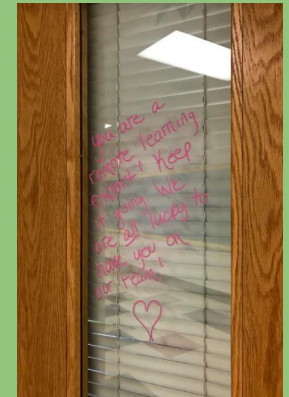 you are a
remote learning
expert! Keep
it going We
are all lucky to
have you on
our team!